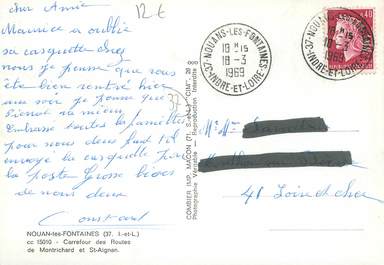 cher Ami
12 €
Maurice a oublié
sa casquette chez
nous je pense que vous
être bien rentré hier
au soir je pense que
va mieux
Embrasse toutes la famille
pour nous deux faut il
envoyé la casquette par
la poste Grosse bises
de nous deux
Constant
37
NOUAN-les-FONTAINES (37. I.-et-L.)
cc 15010 - Carrefour des Routes
de Montrichard et St-Aignan.
COMBIER IMP. MACON
"CIM"
Photographie Véritable - Reproduction Interdite
37-NOUANS-LES-FONTAINES
18 H 15
18-3
1969
INDRE-ET-LOIRE
37-NOUANS-LES-FONTAINES
18 H 15
18-3
1969
INDRE-ET-LOIRE
0,40
41 Loir et cher